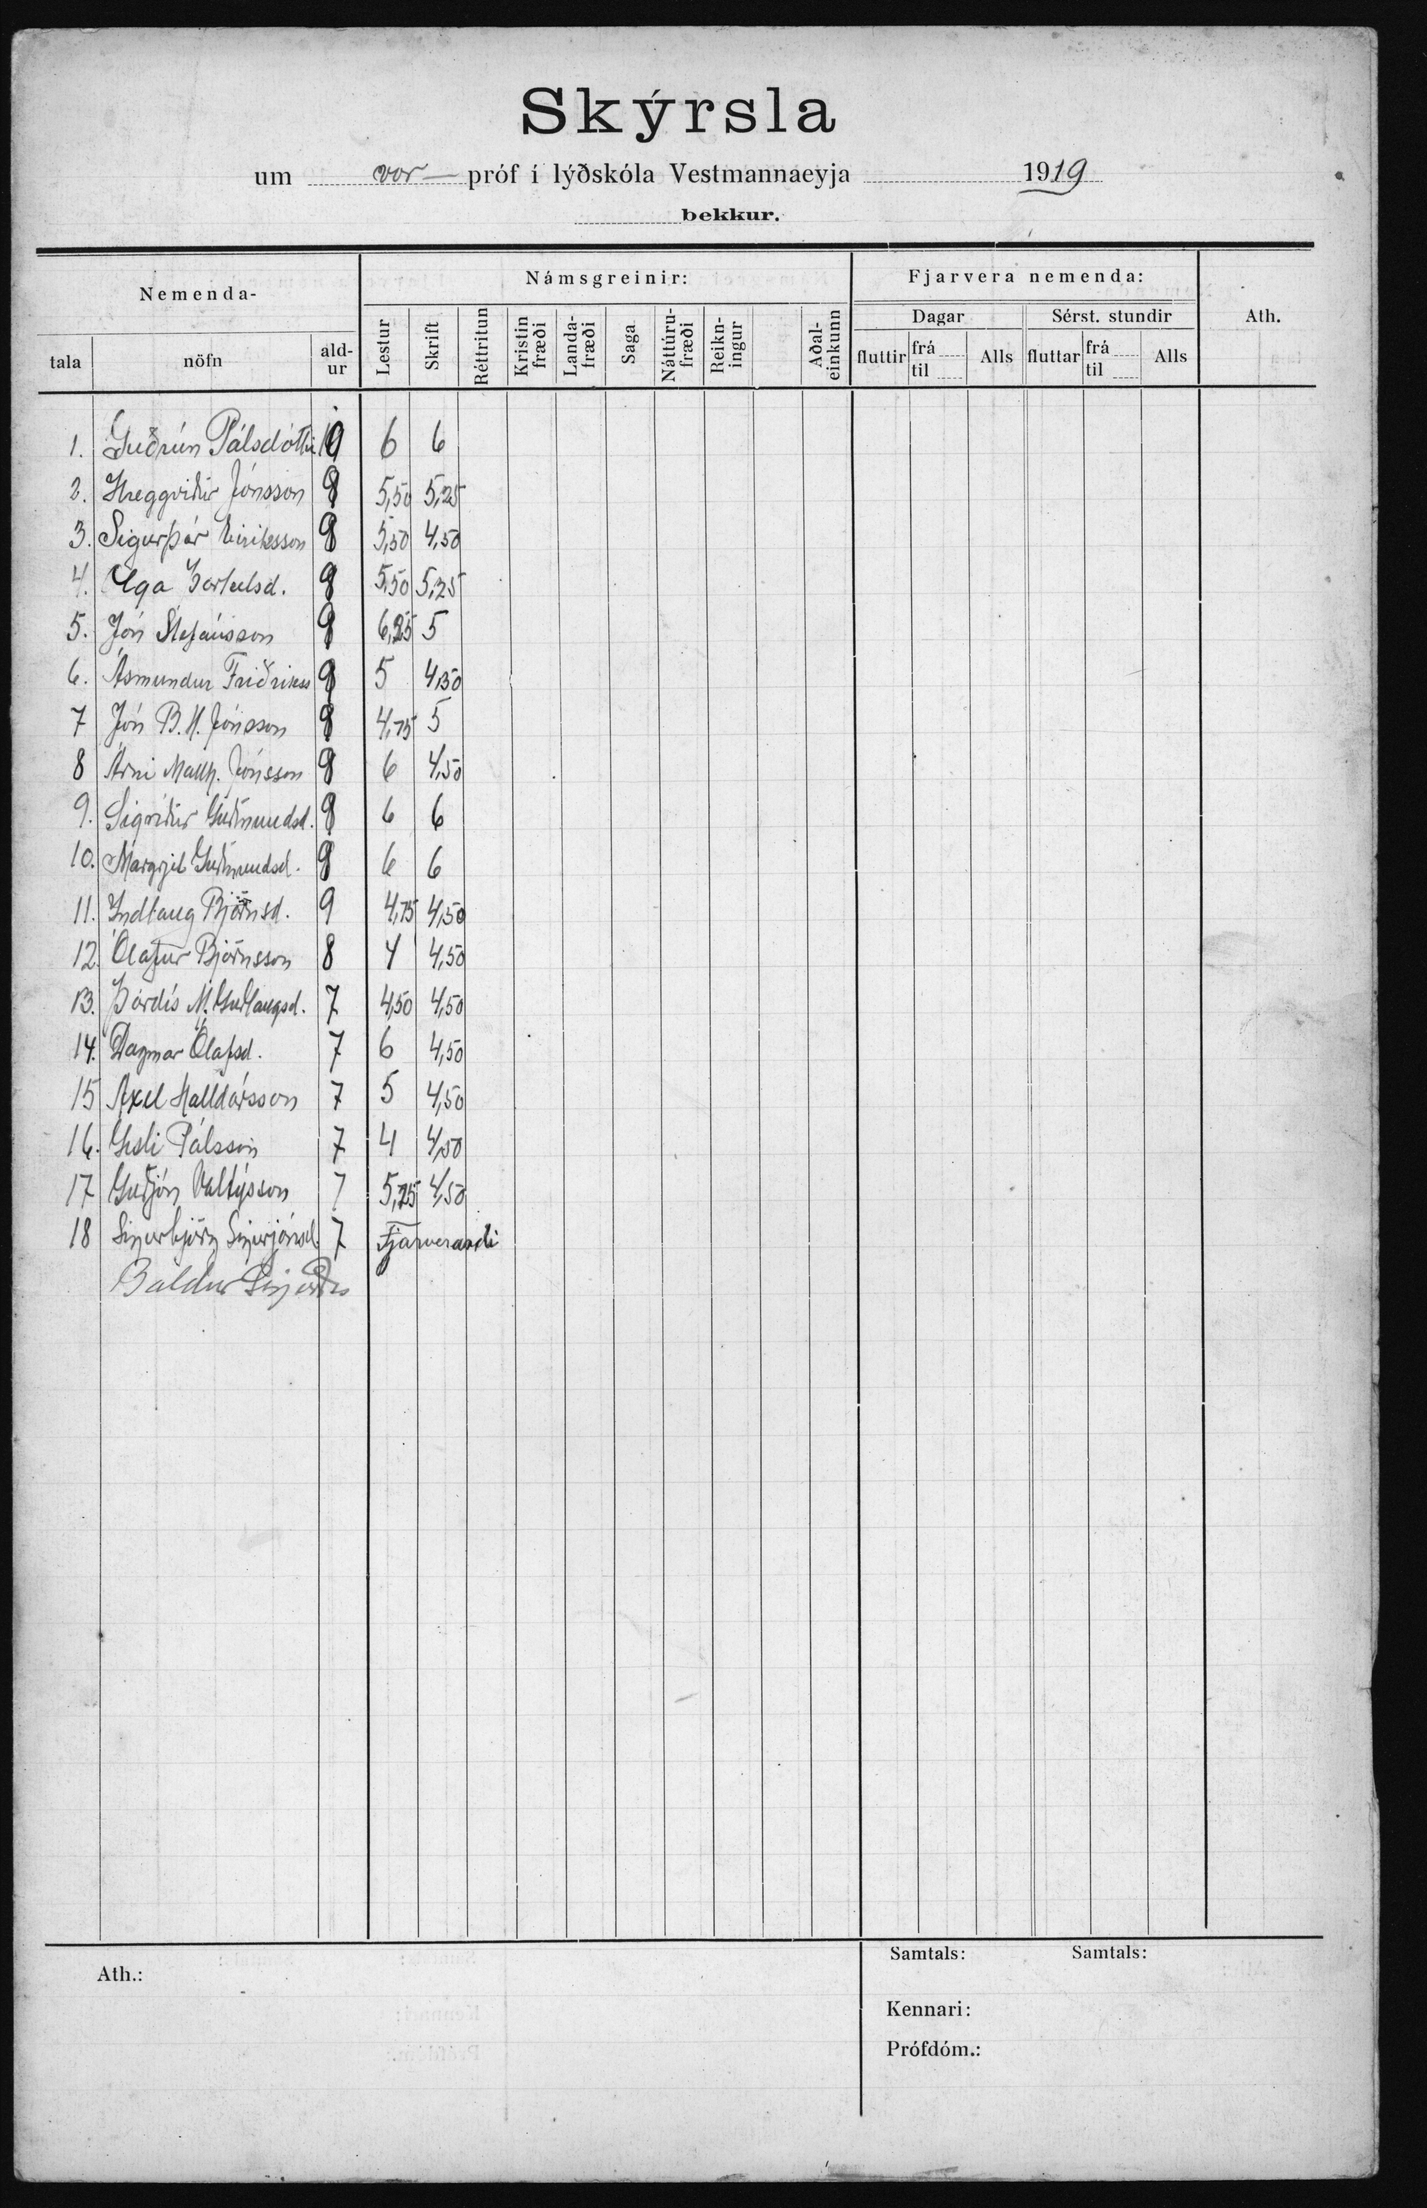 Skýrsla
um vor- próf í lýðskóla Vestmannaeyja 1919
bekkur.
Nemenda- Námsgreinir: Fjarvera nemenda: Ath.
Dagar Sérst. stundir
tala nöfn ald-ur Lestur Skrift Réttritun Kristin fræði Landa-fræði Saga Náttúru-fræði Reikn-ingur Aðal-einkunn fluttir frá til Alls fluttar frá til Alls
1. Guðrún Pálsdóttir 6 6
2. Hreggviður Jónsson 8 5,50 5,25
3. Sigurþór Eiríksson 8 5,50 4,50
4. Olga Þorkelsd. 8 5,50 5,25
5. Jón Stefánsson 8 6,25 5
6. Ásmundur Friðrikss 8 5 4,50
7 Jón B.H. Jónsson 8 4,75 5
8 Árni Matth. Jónsson 8 6 4,50
9. Sigríður Guðmundsd. 8 6 6
10. Margrjet Guðmundsd. 8 6 6
11. Indlaug Björnsd. 9 4,75 4,50
12 Ólafur Björnsson 8 4 4,50
13. Þórdís M. Guðlaugsd. 7 4,50 4,50
14. Dagmar Ólafsd. 7 6 4,50
15 Axel Halldórsson 7 5 4,50
16. Gísli Pálsson 7 4 4,50
17 Guðjón Valtýsson 7 5,25 4,50
18 Sigurbjörg Sigurjónsd. 7 Fjarverandi
Baldur
Ath.: Samtals: Samtals:
Kennari:
Prófdóm.: